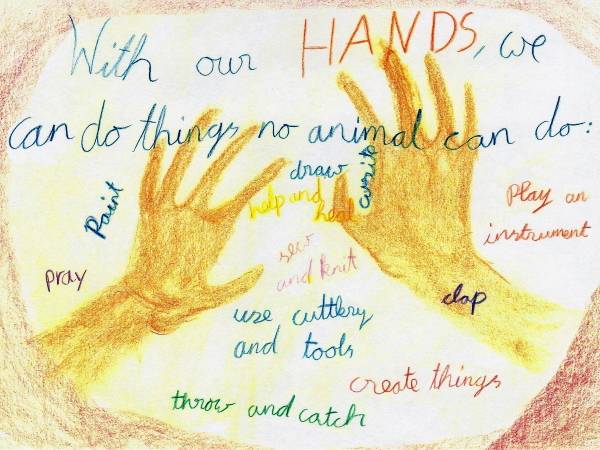 With our HANDS, we
can do things no animal can do:
draw
write
help and
heal
Paint
Play an
instrument
sew
and knit
pray
clap
use cuttlery
and tools
create things
throw and catch